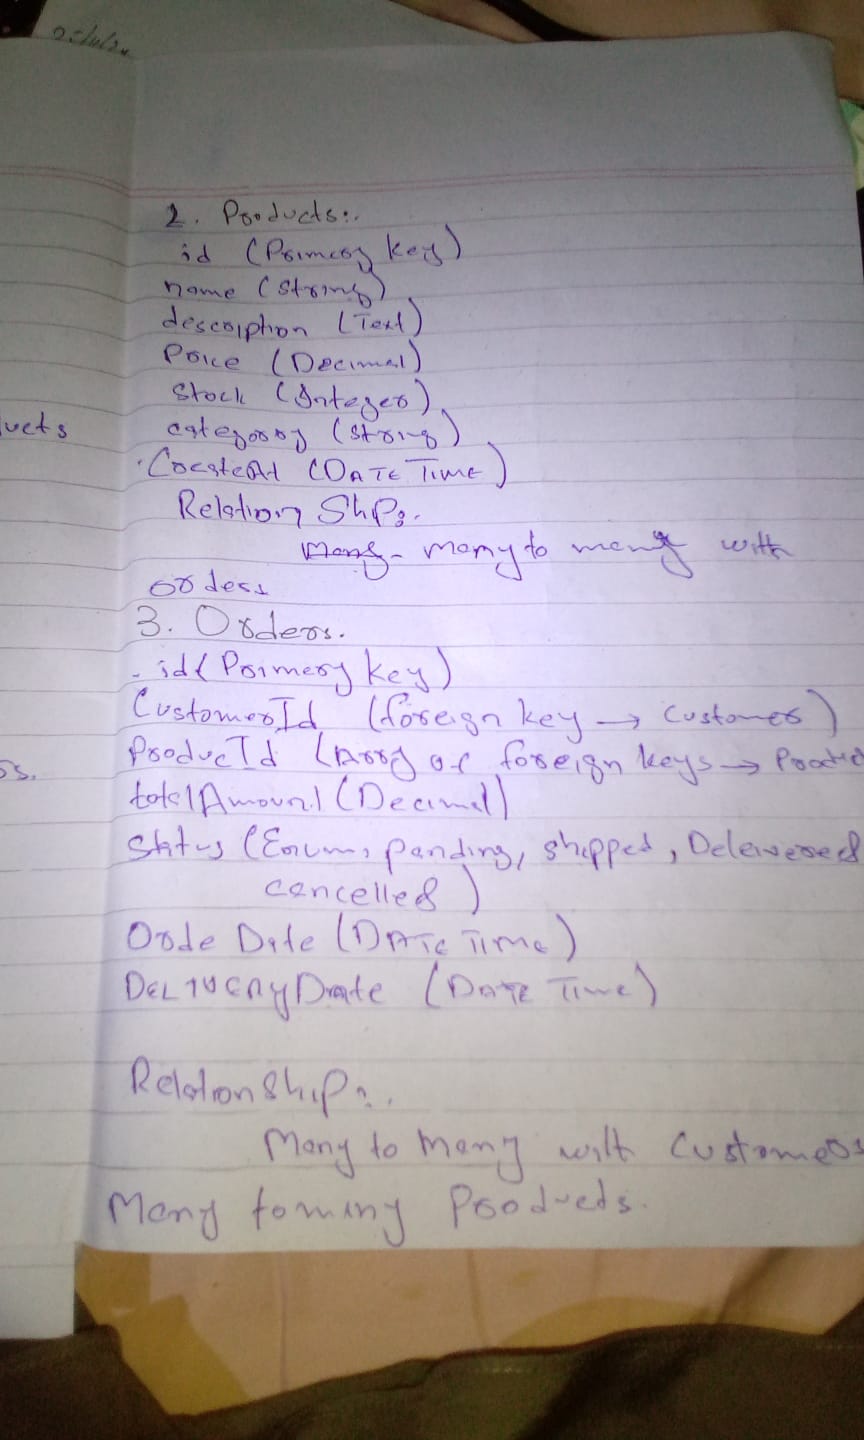 2. Products:.
id (Primery key)
name (String)
description (Text)
Price (Decimal)
Stock (Integer)
ucts
category (string)
CreateAt (DATE TIME)
Relation Ship:.
many to many with
orders
3. Orders.
- id (Primery key)
CustomerId (foreign key → Customer)
ProducTd (Array of foreign keys → Produ
os.
totalAmount (Decimal)
Status (Enum, panding, shipped, Delewered
cancelled)
Orde Date (DATE TIME)
DELIVERY Date (DATE Time)
Relation Ship:.
Many to Many with Customers
Many to many Products.